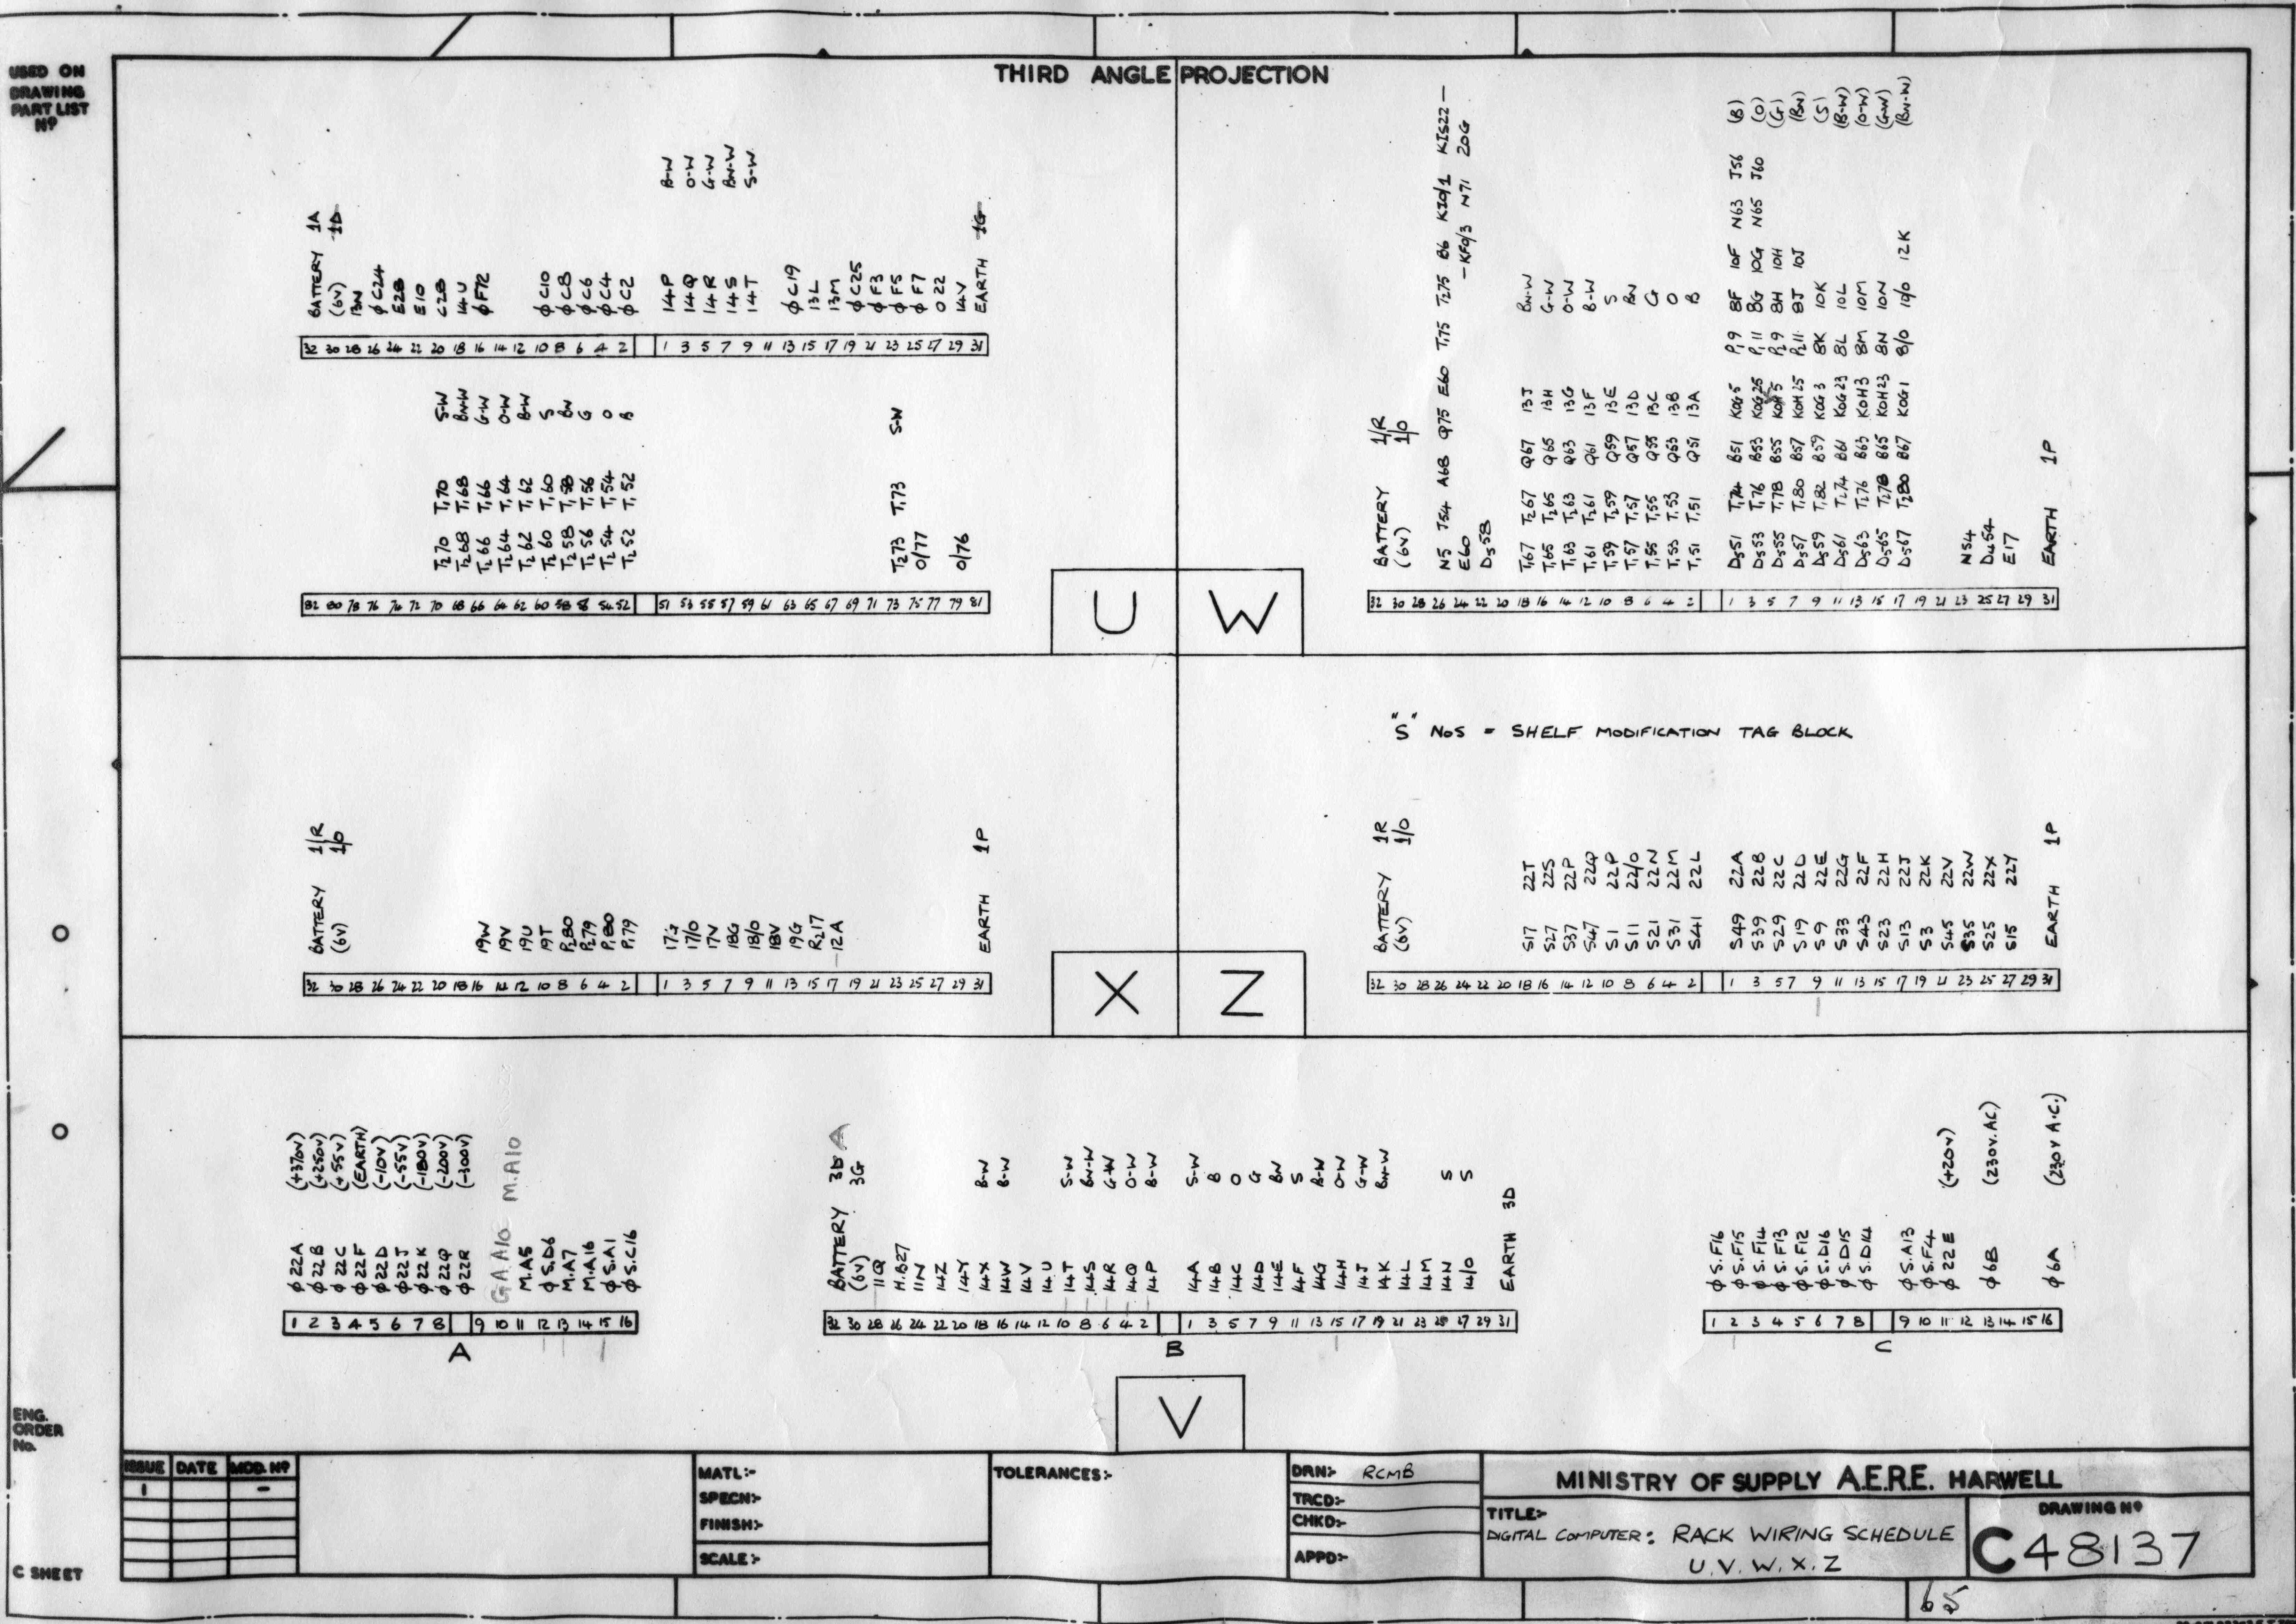 USED ON
DRAWING
PART LIST
Nº
THIRD ANGLE PROJECTION
BATTERY 1A
(6V) 1D
13N
φC24
E28
E10
C28
14U
φF72
φC10
φC8
φC6
φC4
φC2
14P B-W
14Q O-W
14R G-W
14S BN-W
14T S-W
φC19
13L
13M
φC25
φF3
φF5
φF7
O 22
14V
EARTH 1G
32 30 28 26 24 22 20 18 16 14 12 10 8 6 4 2 1 3 5 7 9 11 13 15 17 19 21 23 25 27 29 31
T₂70 T₁70 S-W
T₂68 T₁68 BN-W
T₂66 T₁66 G-W
T₂64 T₁64 O-W
T₂62 T₁62 B-W
T₂60 T₁60 S
T₂58 T₁58 BN
T₂56 T₁56 G
T₂54 T₁54 O
T₂52 T₁52 B
T₂73 T₁73 S-W
0/77
0/76
82 80 78 76 74 72 70 68 66 64 62 60 58 56 54 52 51 53 55 57 59 61 63 65 67 69 71 73 75 77 79 81
U
W
BATTERY 1/R
(6V) 1/0
N5 J54 A68 Q75 E60 T₁75 T₂75 B6 KI0/1 KIS22 —
E60 — KF0/3 N71 20G
D₅58
T₁67 T₂67 Q67 13J BN-W
T₁65 T₂65 Q65 13H G-W
T₁63 T₂63 Q63 13G O-W
T₁61 T₂61 Q61 13F B-W
T₁59 T₂59 Q59 13E S
T₁57 T₁57 Q57 13D BN
T₁55 T₁55 Q55 13C G
T₁53 T₁53 Q53 13B O
T₁51 T₁51 Q51 13A B
D₅51 T₁74 B51 K0G5 P₁9 8F 10F N63 J56 (B)
D₅53 T₁76 B53 K0G25 P₁11 8G 10G N65 J60 (O)
D₅55 T₁78 B55 K0H5 P₂9 8H 10H (G)
D₅57 T₁80 B57 K0H25 P₂11 8J 10J (BN)
D₅59 T₁82 B59 K0G3 8K 10K (S)
D₅61 T₂74 B61 K0G23 8L 10L (B-W)
D₅63 T₂76 B63 K0H3 8M 10M (O-W)
D₅65 T₂78 B65 K0H23 8N 10N (G-W)
D₅67 T₂80 B67 K0G1 8/0 10/0 12K (BN-W)
N54
D₄54
E17
EARTH 1P
32 30 28 26 24 22 20 18 16 14 12 10 8 6 4 2 1 3 5 7 9 11 13 15 17 19 21 23 25 27 29 31
BATTERY 1/R
(6V) 1/0
19W
19V
19U
19T
P₂80
P₂79
P₁80
P₁79
17G
17/0
17V
18G
18/0
18V
19G
R₂17
12A
EARTH 1P
32 30 28 26 24 22 20 18 16 14 12 10 8 6 4 2 1 3 5 7 9 11 13 15 17 19 21 23 25 27 29 31
X
Z
"S" Nos = SHELF MODIFICATION TAG BLOCK
BATTERY 1R
(6V) 1/0
S17 22T
S27 22S
S37 22P
S47 22Q
S1 22P
S11 22/0
S21 22N
S31 22M
S41 22L
S49 22A
S39 22B
S29 22C
S19 22D
S9 22E
S33 22G
S43 22F
S23 22H
S13 22J
S3 22K
S45 22V
S35 22W
S25 22X
S15 22Y
EARTH 1P
32 30 28 26 24 22 20 18 16 14 12 10 8 6 4 2 1 3 5 7 9 11 13 15 17 19 21 23 25 27 29 31
φ22A (+370V)
φ22B (+250V)
φ22C (+55V)
φ22F (EARTH)
φ22D (-10V)
φ22J (-55V)
φ22K (-180V)
φ22Q (-200V)
φ22R (-300V)
GAA10 M.A10
M.A5
φS.D6
M.A7
M.A16
φS.A1
φS.C16
1 2 3 4 5 6 7 8 9 10 11 12 13 14 15 16
A
BATTERY 3D A
(6V) 3G
11Q
H.B27
11N
14Z
14Y
14X B-W
14W B-W
14V
14U
14T S-W
14S BN-W
14R G-W
14Q O-W
14P B-W
14A S-W
14B B
14C O
14D G
14E BN
14F S
14G B-W
14H O-W
14J G-W
14K BN-W
14L
14M
14N S
14/0 S
EARTH 3D
32 30 28 26 24 22 20 18 16 14 12 10 8 6 4 2 1 3 5 7 9 11 13 15 17 19 21 23 25 27 29 31
B
φS.F16
φS.F15
φS.F14
φS.F13
φS.F12
φS.D16
φS.D15
φS.D14
φS.A13
φS.F4
φ22E (+20V)
φ6B (230V.AC.)
φ6A (230V A.C.)
1 2 3 4 5 6 7 8 9 10 11 12 13 14 15 16
C
V
ENG.
ORDER
No.
C SHEET
ISSUE DATE MOD. Nº
1 -
MATL:-
SPECN:-
FINISH:-
SCALE:-
TOLERANCES:-
DRN:- RCMB
TRCD:-
CHKD:-
APPD:-
MINISTRY OF SUPPLY A.E.R.E. HARWELL
TITLE:-
DIGITAL COMPUTER: RACK WIRING SCHEDULE
U.V.W.X.Z
DRAWING Nº
C48137
65